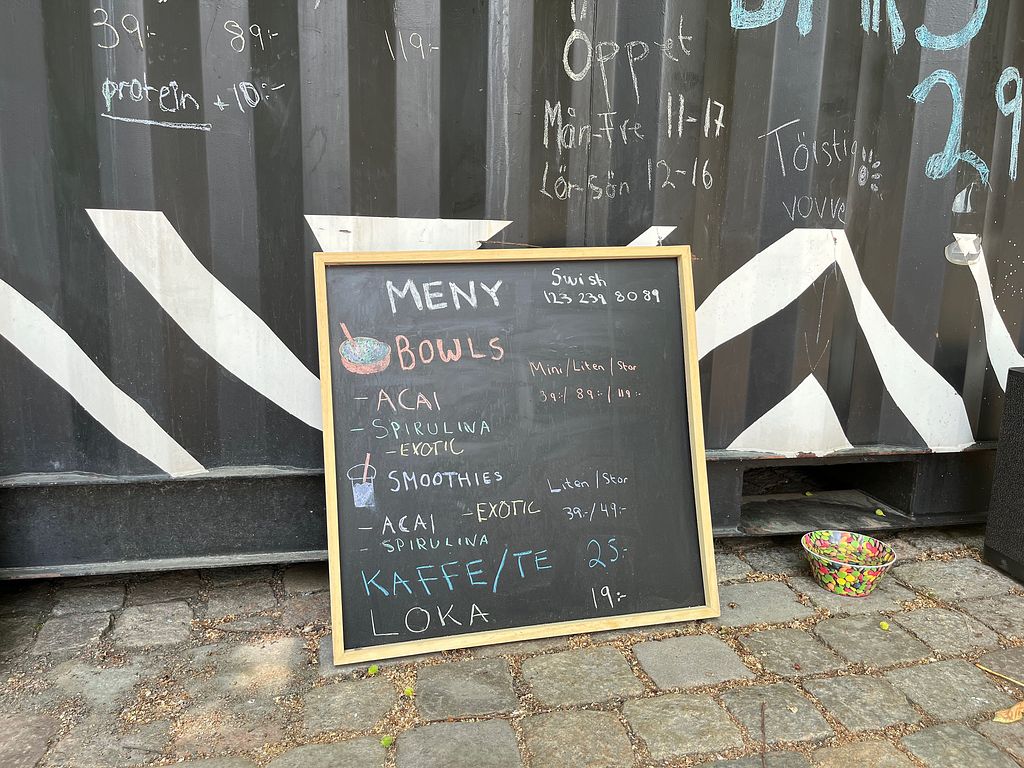 39:- 89:- 119:-
protein +10:-
Öppet
Mån-Fre 11-17
Lör-sön 12-16
29
Törstig
vovve
MENY
Swish
123 239 80 89
BOWLS
Mini/Liten/Stor
39:-/89:-/119:-
- ACAI
- SPIRULINA
- EXOTIC
SMOOTHIES
Liten/Stor
- ACAI - EXOTIC 39:-/49:-
- SPIRULINA
KAFFE/TE 25:-
LOKA 19:-